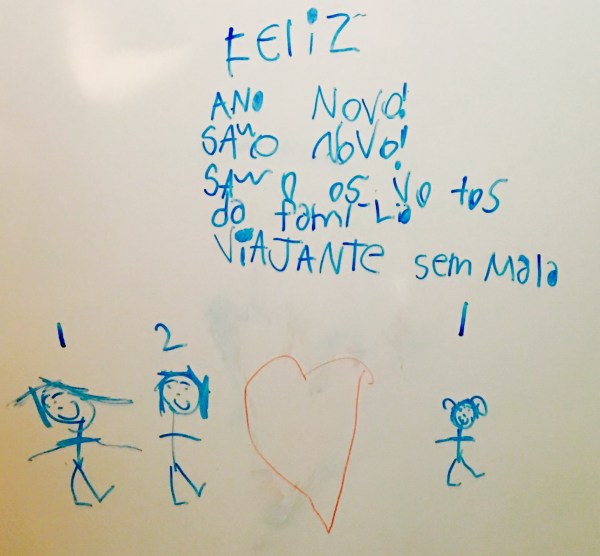 FELIZ
ANO NOVO!
SAÕ NOVO!
SAÕ OS VOTOS
da FAMÍLIA
VIAJANTE SEM MALA
1 2 1